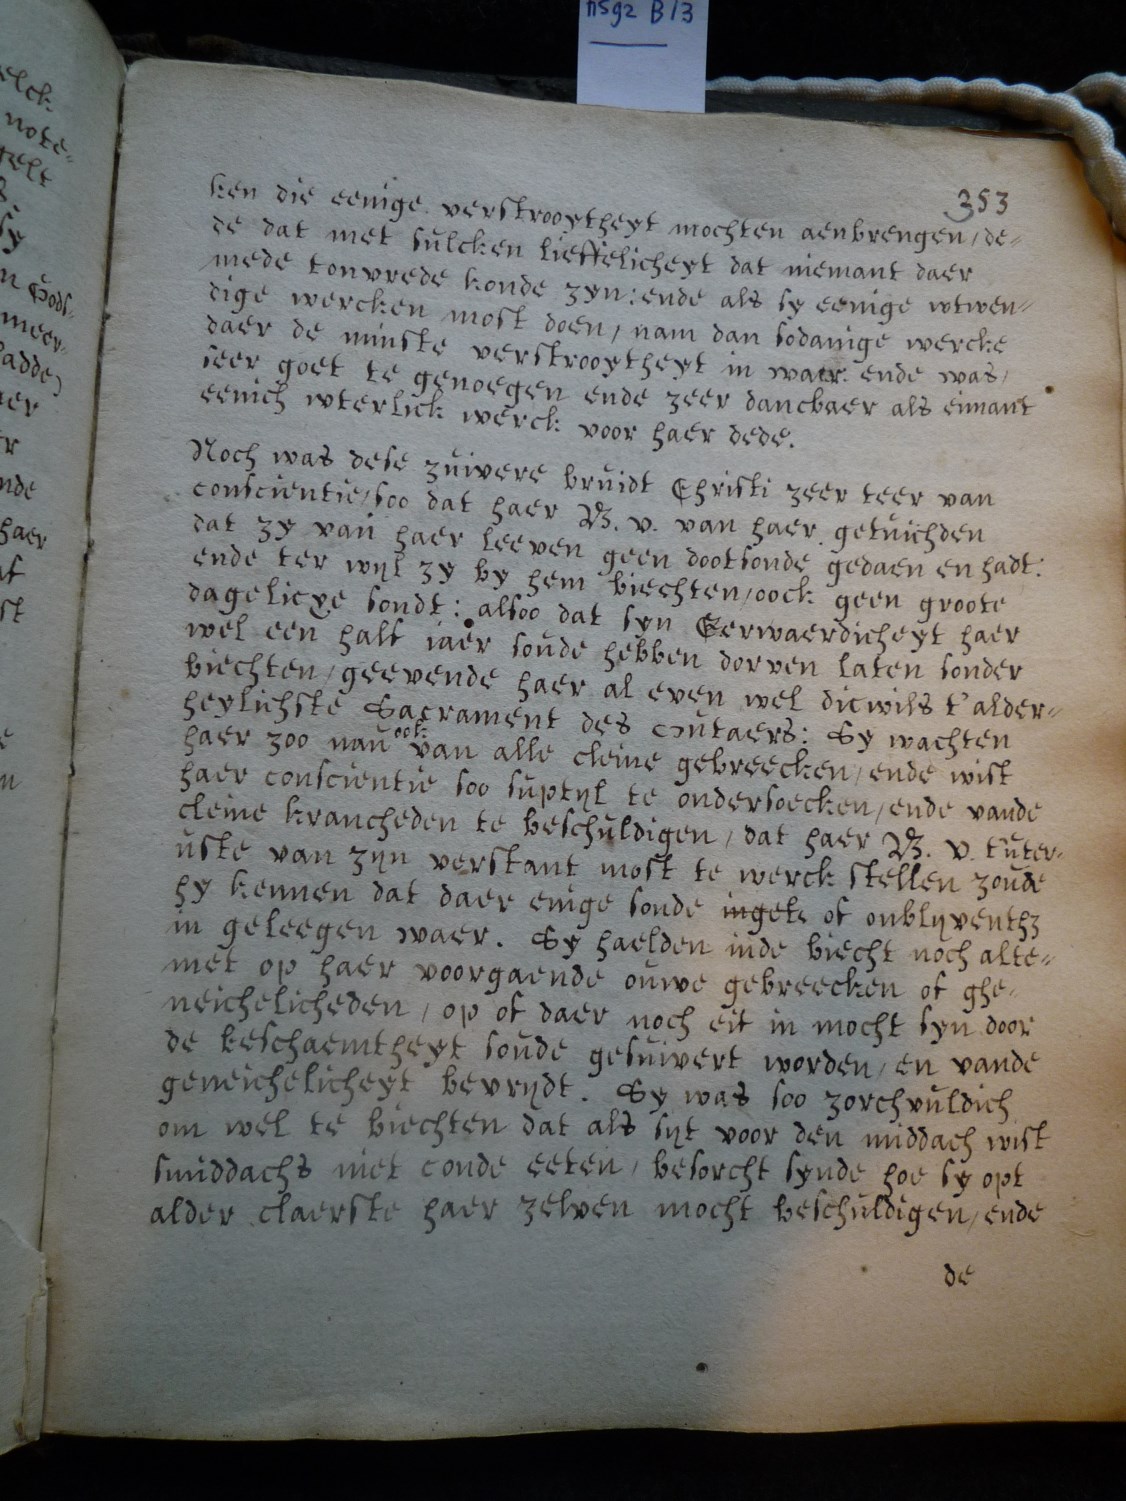 hsg2 B13
353
ken die eenige verstrooytheyt mochten aenbrengen / de-
de dat met sulcken lieffelicheyt dat niemant daer
mede tonvrede konde zyn: ende als sy eenige wtwen-
dige wercken most doen / nam dan sodanige wercke
daer de minste verstrooytheyt in waer: ende was /
seer goet te genoegen ende zeer danckbaer als eimant
eenich wterlick werck voor haer dede.
Noch was dese zuivere bruidt Christi zeer teer van
conscientie / soo dat haer B. v. van haer getuichden
dat zy van haer leeven geen dootsonde gedaen en hadt:
ende ter wijl zy by hem biechten / oock geen groote
dagelicxe sondt: alsoo dat syn Eerwaerdicheyt haer
wel een half iaer soude hebben dorven laten sonder
biechten / geevende haer al even wel dicwils t'alder-
heylichste Sacrament des Outaers: Sy wachten
haer zoo nau ook van alle cleine gebreecken / ende wist
haer conscientie soo suptyl te ondersoecken / ende vande
cleine krancheden te beschuldigen / dat haer B. v. t'uter-
uste van zyn verstant most te werck stellen zoude
hy kennen dat daer enige sonde ingele of onblyventhz
in geleegen waer. Sy haelden inde biecht noch alte-
met op haer voorgaende ouwe gebreecken of ghe-
neichelicheden / op of daer noch eit in mocht syn door
de beschaemtheyt soude gesuivert worden / en vande
geneichelicheyt bevrydt. Sy was soo zorchvuldich
om wel te biechten dat als syt voor den middach wist
smiddachs niet conde eeten / besorcht synde hoe sy opt
alder claerste haer zelven mocht beschuldigen / ende
de
elck
note-
gelt
sy
n Gods-
meer-
hadde)
er
nde
haer
af
st